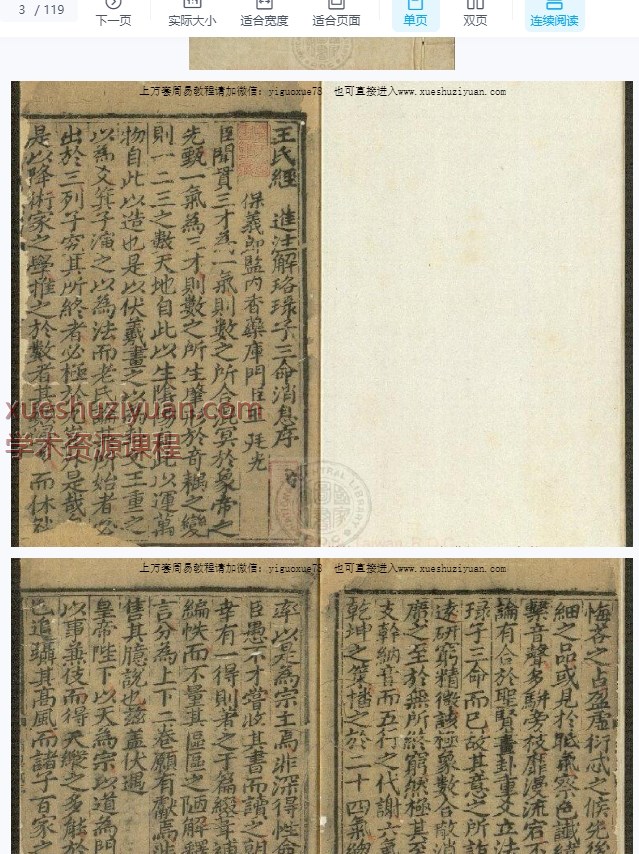 3 / 119
下一页
实际大小
适合宽度
适合页面
单页
双页
连续阅读
上万套周易教程请加微信：yiguoxue73 也可直接进入www.xueshuziyuan.com
王氏經 進注解珞琭子三命消息序
保義郎監内香藥庫門臣王廷光
臣聞貫三才為一氣則數之所合混冥於象帝之
先甄一氣為三才則數之所生肇形於奇耦之變
則一二三之數天地自此以生陰陽自此以運萬
物自此以造也是以伏羲畫之以為卦文王重之
以為爻箕子演之以為法而老氏所始者必
出於三列子究其所終者必極於九豈非是哉
是以降術家之學推之於數者其 而休祥
xueshuziyuan.com
学术资源课程
上万套周易教程请加微信：yiguoxue73 也可直接进入www.xueshuziyuan.com
悔吝之占盈虛衍忒之候先後
細之品或見於眡氣察色讖緯
擊音聲多駢旁枝靡漫流宕不
論有合於聖賢畫卦重爻立法
琭子三命而已故其意之所詣
遠研窮精微該極象數合散消
廢之至於無所終窮然極其至
支幹納音而五行之代謝六氣
乾坤之策播之於二十四氣總
率以是為宗主焉非深得性命
臣愚不才嘗收其書而讀之朝
幸有一得則著之于篇總葺補
編帙而不量其區區之陋解釋
言分為上下二卷願有獻焉非
售其臆說也茲蓋伏遇
皇帝陛下以天為宗以道為門
以事兼伎而得天縱之多能於
已追驤其高風而諸子百家之